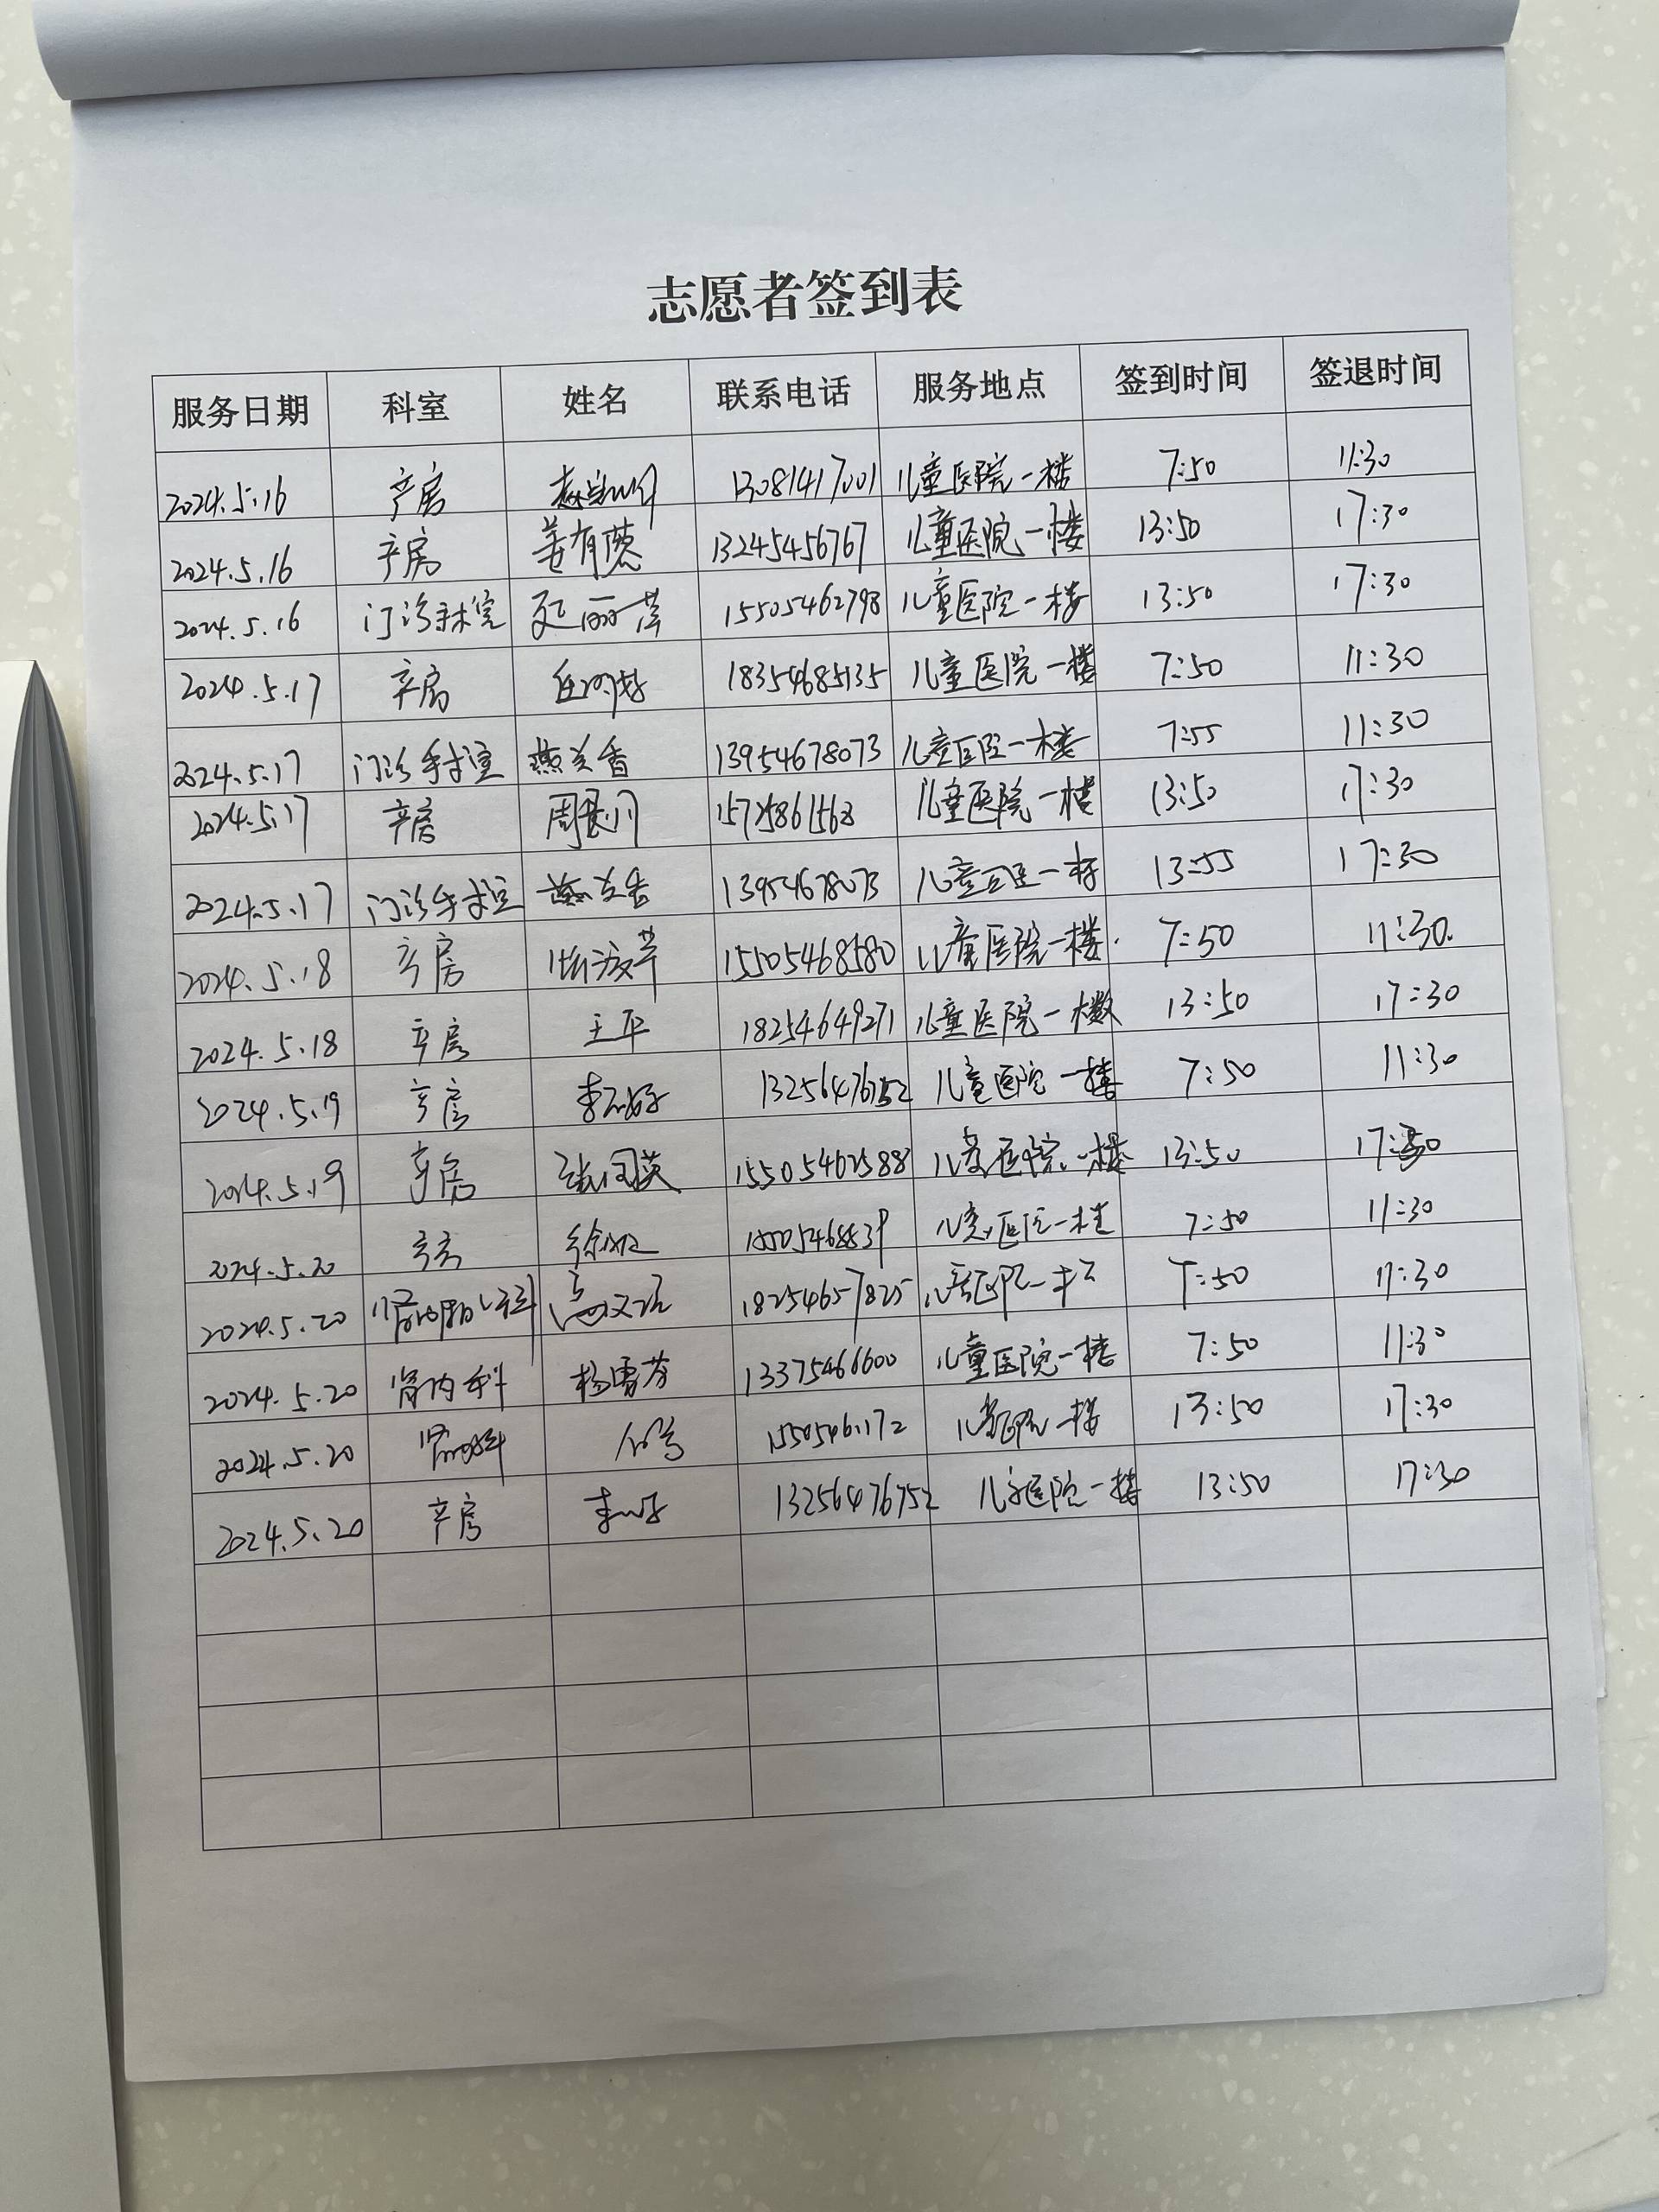 志愿者签到表
服务日期 科室 姓名 联系电话 服务地点 签到时间 签退时间
2024.5.16 产房 13081417001 儿童医院一楼 7:50 11:30
2024.5.16 产房 姜有蕙 13245456767 儿童医院一楼 13:50 17:30
2024.5.16 门诊手术室 15505462798 儿童医院一楼 13:50 17:30
2024.5.17 产房 18354685135 儿童医院一楼 7:50 11:30
2024.5.17 门诊手术室 燕兰香 13954678073 儿童医院一楼 7:55 11:30
2024.5.17 产房 儿童医院一楼 13:50 17:30
2024.5.17 门诊手术室 燕兰香 13954678073 儿童医院一楼 13:55 17:30
2024.5.18 产房 15505468580 儿童医院一楼. 7:50 11:30.
2024.5.18 产房 王平 18254649271 儿童医院一楼 13:50 17:30
2024.5.19 产房 13256476752 儿童医院一楼 7:50 11:30
2024.5.19 产房 15505462588 儿童医院一楼 13:50 17:30
2024.5.20 产房 儿童医院一楼 7:50 11:30
2024.5.20 18254657825 儿童医院一楼 7:50 11:30
2024.5.20 肾内科 杨雪芬 13375466600 儿童医院一楼 7:50 11:30
2024.5.20 肾内科 儿童医院一楼 13:50 17:30
2024.5.20 产房 13256476752 儿童医院一楼 13:50 17:30